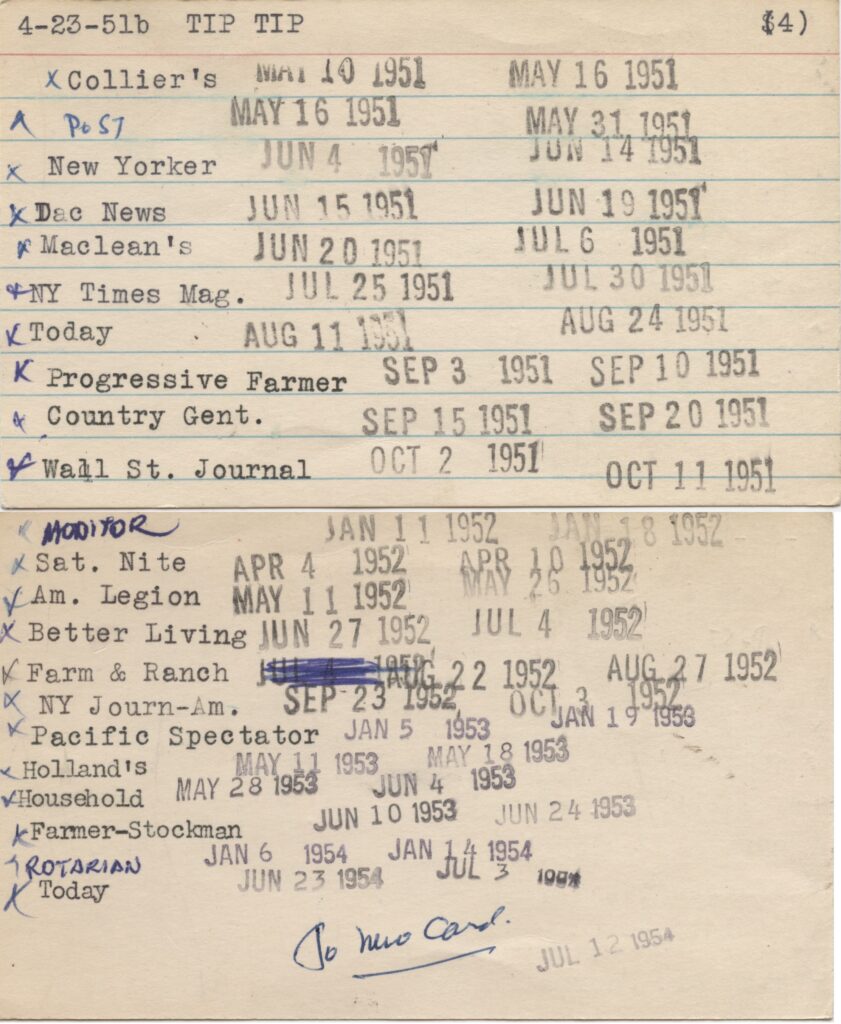 4-23-51b TIP TIP (4)
x Collier's MAY 10 1951 MAY 16 1951
POST MAY 16 1951 MAY 31 1951
x New Yorker JUN 4 1951 JUN 14 1951
x Dac News JUN 15 1951 JUN 19 1951
x Maclean's JUN 20 1951 JUL 6 1951
NY Times Mag. JUL 25 1951 JUL 30 1951
x Today AUG 11 1951 AUG 24 1951
x Progressive Farmer SEP 3 1951 SEP 10 1951
x Country Gent. SEP 15 1951 SEP 20 1951
x Wall St. Journal OCT 2 1951 OCT 11 1951
x MODITOR JAN 11 1952 JAN 18 1952
x Sat. Nite APR 4 1952 APR 10 1952
x Am. Legion MAY 11 1952 MAY 26 1952
x Better Living JUN 27 1952 JUL 4 1952
x Farm & Ranch JUL 4 1952 AUG 22 1952 AUG 27 1952
x NY Journ-Am. SEP 23 1952 OCT 3 1952
x Pacific Spectator JAN 5 1953 JAN 19 1953
x Holland's MAY 11 1953 MAY 18 1953
x Household MAY 28 1953 JUN 4 1953
x Farmer-Stockman JUN 10 1953 JUN 24 1953
ROTARIAN JAN 6 1954 JAN 14 1954
x Today JUN 23 1954 JUL 3 1954
To New Card. JUL 12 1954